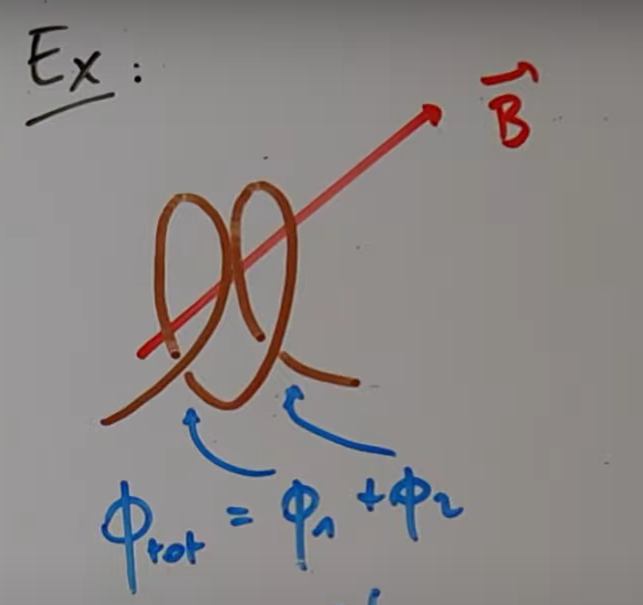 Ex :
B⃗
ϕtot = ϕ1 + ϕ2